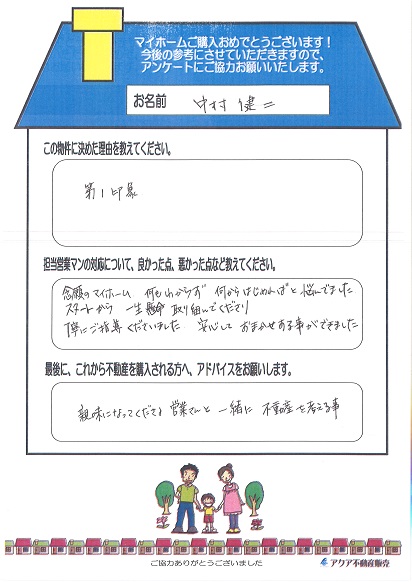 マイホームご購入おめでとうございます！
今後の参考にさせていただきますので、
アンケートにご協力お願いいたします。
お名前 中村 健二
この物件に決めた理由を教えてください。
第1印象
担当営業マンの対応について、良かった点、悪かった点など教えてください。
念願のマイホーム 何もわからず 何からはじめればと悩んでました
スタートから 一生懸命 取り組んでくださり
丁寧にご指導くださいました 安心して おまかせする事ができました
最後に、これから不動産を購入される方へ、アドバイスをお願いします。
親味になってくださる 営業さんと 一緒に 不動産を考える事
ご協力ありがとうございました
アクア不動産販売